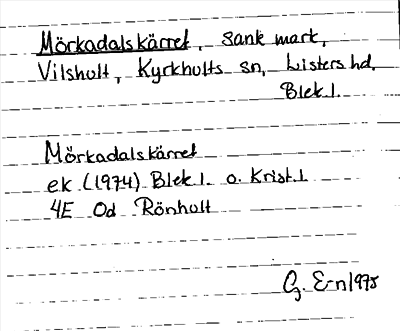 Mörkadalskärret, sank mark,
Vilshult, Kyrkhults sn, Listers hd.
Blek.l.
Mörkadalskärret
ek (1974) Blek l. o. Krist.l.
4E Od Rönhult
G. E-n 1975